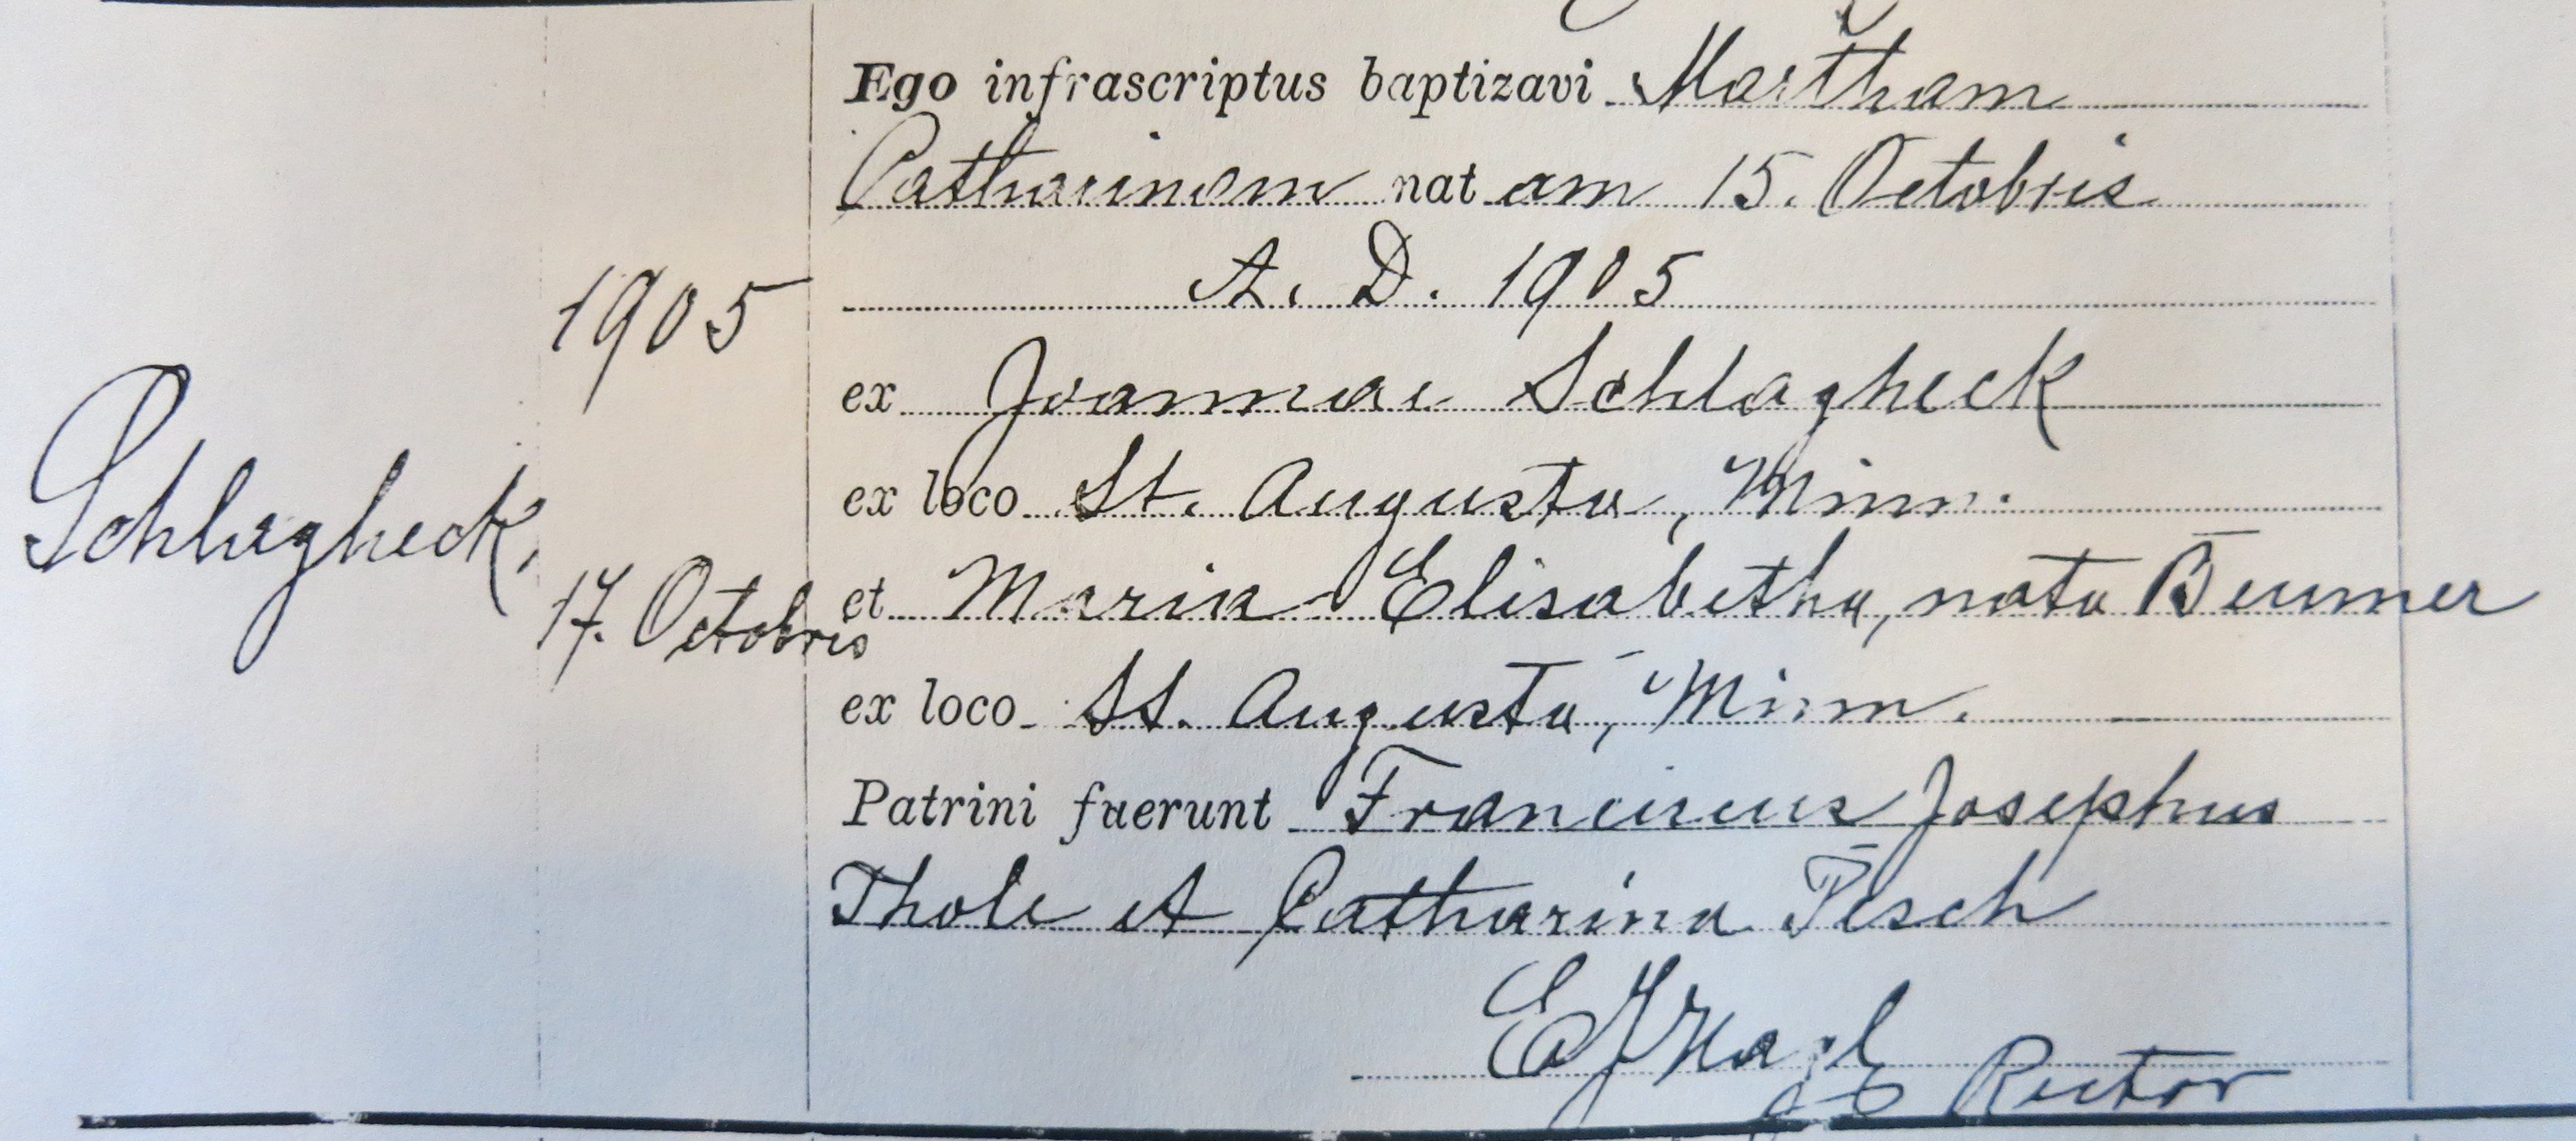 Ego infrascriptus baptizavi Martham
Catharinam natam 15. Octobris
A. D. 1905
1905
ex Joannae Schlagheck
Schlagheck,
ex loco St. Augusta, Minn.
17. Octobris
et Maria Elisabetha, nata Beumer
ex loco St. Augusta, Minn.
Patrini fuerunt Franciscus Josephus
Thole et Catharina Pesch
Rector